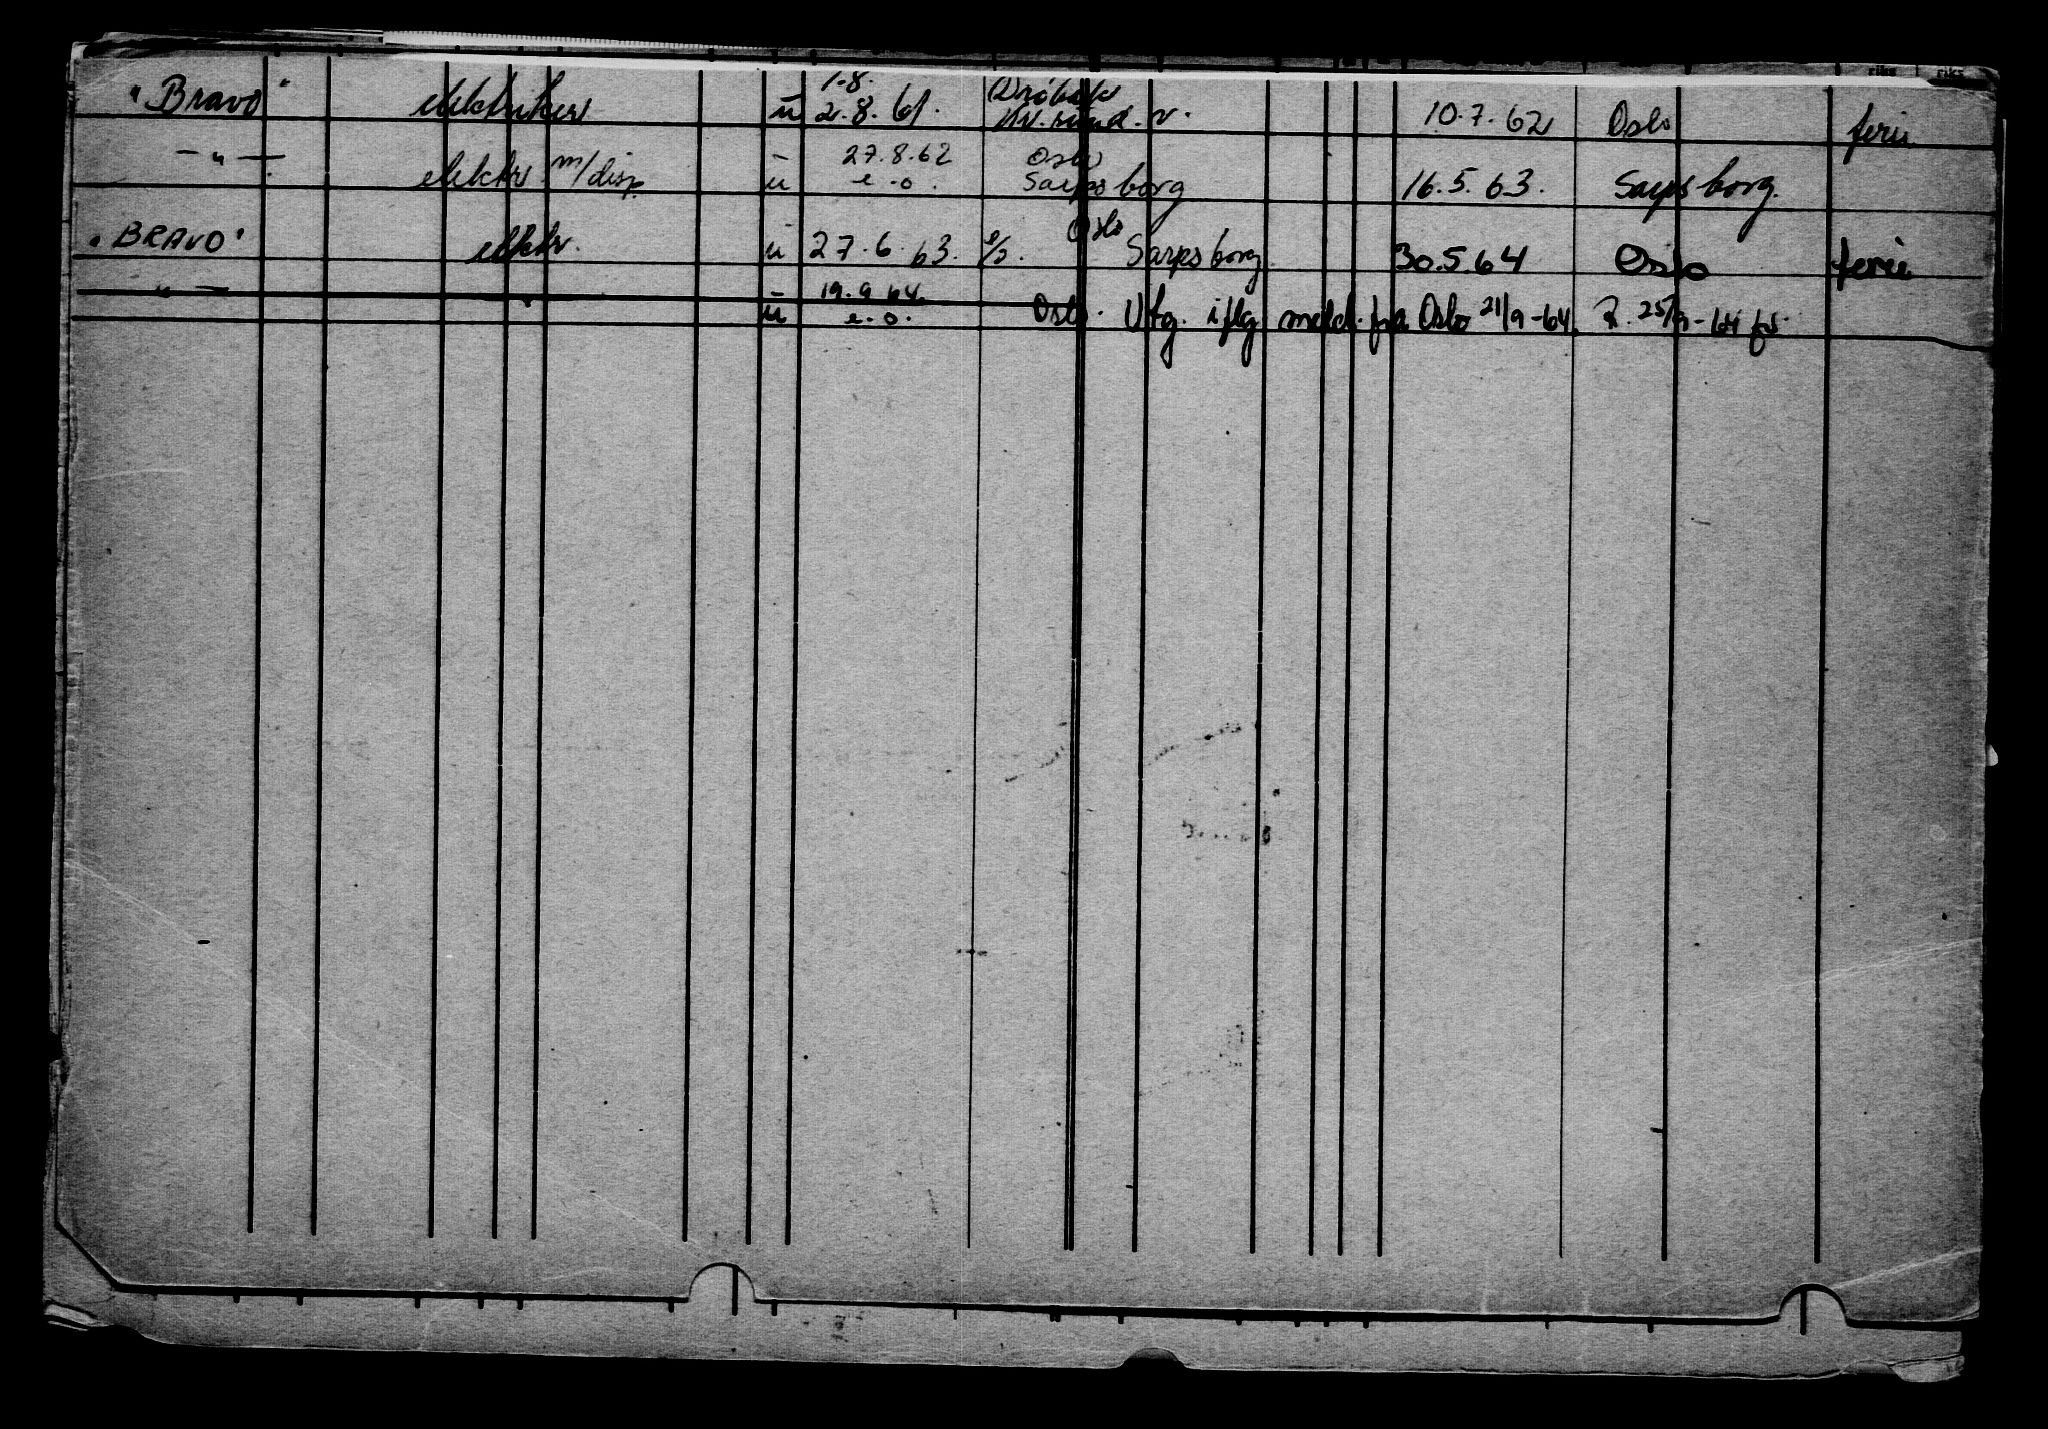 "Bravo" elektriker ū 1.8. 2.8.61. Drøbak 10.7.62 Oslo ferie
— " — elektr m/disp. - 27.8.62 Oslo
u e.o. Sarpsborg 16.5.63. Sarpsborg.
"BRAVO" elektr. ū 27.6.63. e/s. Oslo Sarpsborg 30.5.64 Oslo ferie
— " — ū 19.9.64. e.o. Oslo. Utg. iflg meld. fra Oslo 21/9-64. R. 25/9-64